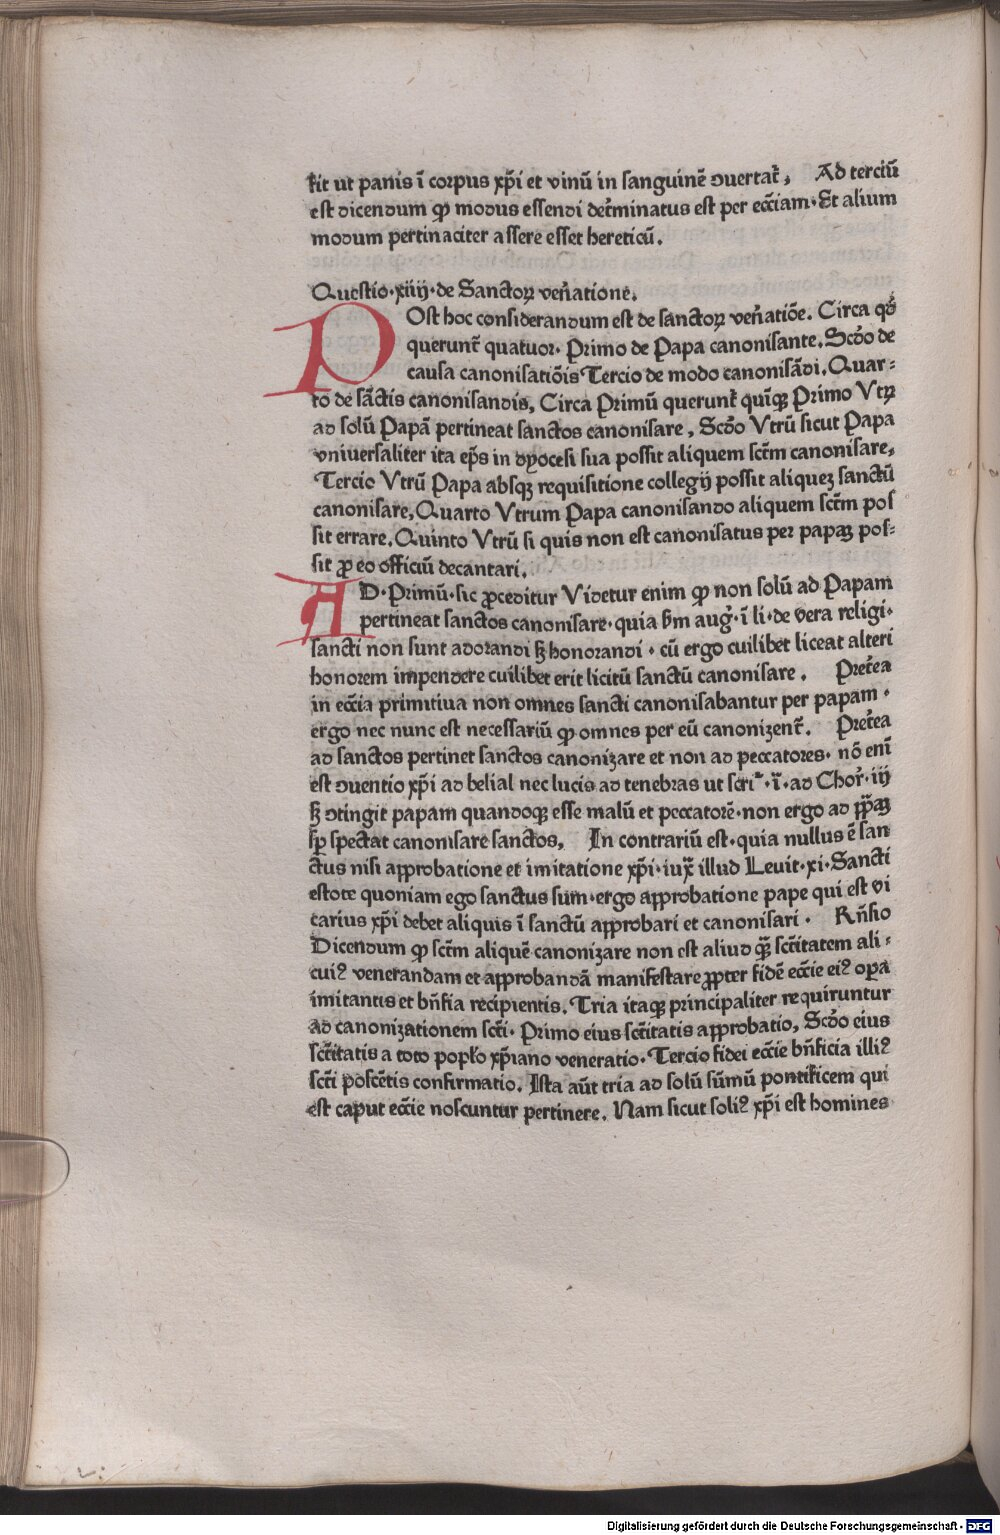 fit ut panis ī corpus xp̄i et vinū in sanguinē ↄuertat᷑, Ad terciū
est dicendum ꝙ modus essendi det᷑minatus est per ecc̄iam. Et alium
modum pertinaciter assere esset hereticū.
Questio·xiiij·de Sanctoꝝ ven̄atione.
POst hoc considerandum est de sanctoꝝ ven̄atiōe. Circa qd̄
querunt᷑ quatuor. Primo de Papa canonisante. Scd̄o de
causa canonisatiōis Tercio de modo canonisādi. Quar-
to de sāctis canonisandis, Circa Primū querunt᷑ quīqꝫ Primo Vtꝝ
ad solū Papā pertineat sanctos canonisare, Scd̄o Vtrū sicut Papa
vniuersaliter ita ep̄s in dyocesi sua possit aliquem sct̄m canonisare,
Tercio Vtrū Papa absqꝫ requisitione collegij possit aliqueꝫ sanctū
canonisare, Quarto Vtrum Papa canonisando aliquem sct̄m pos
sit errare. Quinto Vtrū si quis non est canonisatus per papaꝫ pos-
sit ꝓ eo officiū decantari.
AD·Primū·sic ꝓceditur Videtur enim ꝙ non solū ad Papam
pertineat sanctos canonisare· quia bm̄ aug᷑· ī li·de vera religi·
sancti non sunt adorandi sꝫ honorandi · cū ergo cuilibet liceat alteri
honorem impendere cuilibet erit licitū sanctū canonisare. Pret᷑ea
in ecc̄ia primitiua non omnes sancti canonisabantur per papam·
ergo nec nunc est necessariū ꝙ omnes per eū canonizent᷑. Pret᷑ea
ad sanctos pertinet sanctos canonizare et non ad peccatores· nō enī
est ↄuentio xp̄i ad belial nec lucis ad tenebras ut scri᷑·ī·ad Chor᷑·iij
sꝫ ↄtingit papam quandoqꝫ esse malū et peccatorē·non ergo ad pp̄aꝫ
sp̄ spectat canonisare sanctos, In contrariū est·quia nullus ē san
ctus nisi approbatione et imitatione xp̄i·iux̄ illud Leuit·xi·Sancti
estote quoniam ego sanctus sum·ergo approbatione pape qui est vi
carius xp̄i debet aliquis ī sanctū approbari et canonisari· Rn̄sio
Dicendum ꝙ sct̄m aliquē canonizare non est aliud qꝫ̄ sct̄itatem ali-
cuiꝰ venerandam et approbandā manifestare ꝓpter fidē ecc̄ie eiꝰ oꝑa
imitantis et bn̄fia recipientis. Tria itaqꝫ principaliter requiruntur
ad canonizationem scti. Primo eius sct̄itatis approbatio, Scd̄o eius
sct̄itatis a toto popl̄o xp̄iano veneratio. Tercio fidei ecc̄ie bn̄ficia illiꝰ
sct̄i poscētis confirmatio. Ista aūt tria ad solū sūmū pontificem qui
est caput ecc̄ie noscuntur pertinere. Nam sicut soliꝰ xp̄i est homines
Digitalisierung gefördert durch die Deutsche Forschungsgemeinschaft - DFG